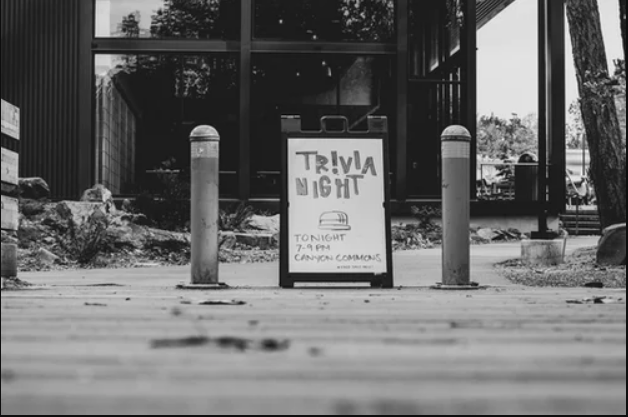 TR!VIA
NIGHT
TONIGHT
7-9 PM
CANYON COMMONS